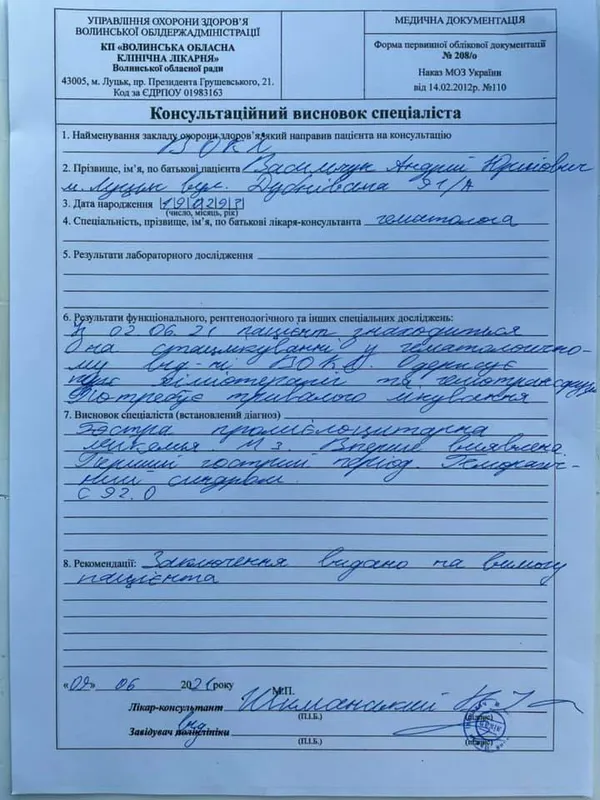 УПРАВЛІННЯ ОХОРОНИ ЗДОРОВ'Я
ВОЛИНСЬКОЇ ОБЛДЕРЖАДМІНІСТРАЦІЇ
КП «ВОЛИНСЬКА ОБЛАСНА
КЛІНІЧНА ЛІКАРНЯ»
Волинської обласної ради
43005, м. Луцьк, пр. Президента Грушевського, 21.
Код за ЄДРПОУ 01983163
МЕДИЧНА ДОКУМЕНТАЦІЯ
Форма первинної облікової документації
№ 208/о
Наказ МОЗ України
від 14.02.2012р. №110
Консультаційний висновок спеціаліста
1. Найменування закладу охорони здоров'я, який направив пацієнта на консультацію
ВОКЛ
2. Прізвище, ім'я, по батькові пацієнта Васильчук Андрій Юрійович
м. Луцьк вул. 91/А
3. Дата народження
(число, місяць, рік)
4. Спеціальність, прізвище, ім'я, по батькові лікаря-консультанта гематолога
5. Результати лабораторного дослідження
6. Результати функціонального, рентгенологічного та інших спеціальних досліджень:
02.06.21 пацієнт знаходиться
на стацлікуванні у гематологічно-
му від-ні ВОКЛ. Одержує
курс хіміотерапії та гемотрансфузії
Потребує тривалого лікування
7. Висновок спеціаліста (встановлений діагноз)
Гостра промієлоцитарна
лейкемія М3. Вперше виявлена.
Перший гострий період. Геморагіч-
ний синдром.
С 92.0
8. Рекомендації: Заключення видано на вимогу
пацієнта
«09» 06 2021 року
М.П.
Лікар-консультант Шиманський
(П.І.Б.) (підпис)
від
Завідувач поліклініки
(П.І.Б.) (підпис)